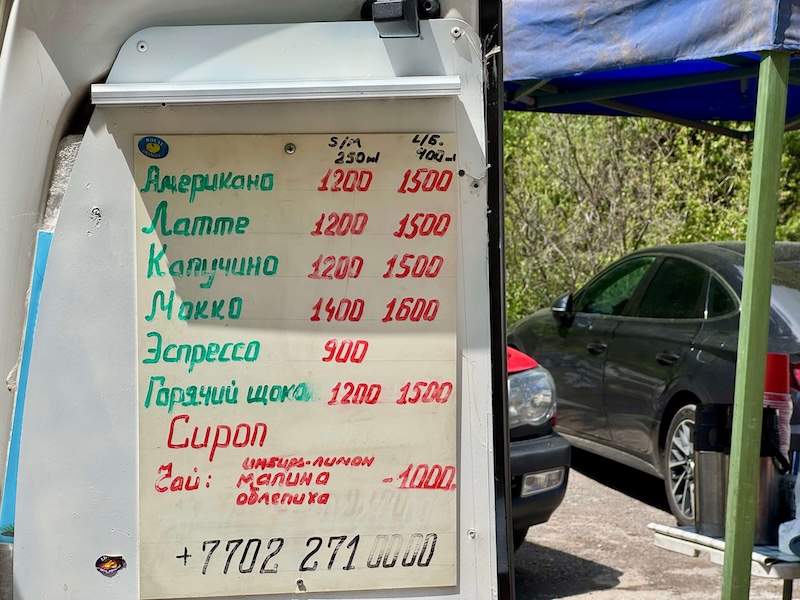 S/м        L/б.
250 ml     400 ml
Американо 1200 1500
Латте 1200 1500
Капучино 1200 1500
Мокко 1400 1600
Эспрессо 900
Горячий шоко 1200 1500
Сироп
имбирь-лимон
Чай: малина -1000.
облепиха
+7702 271 0000